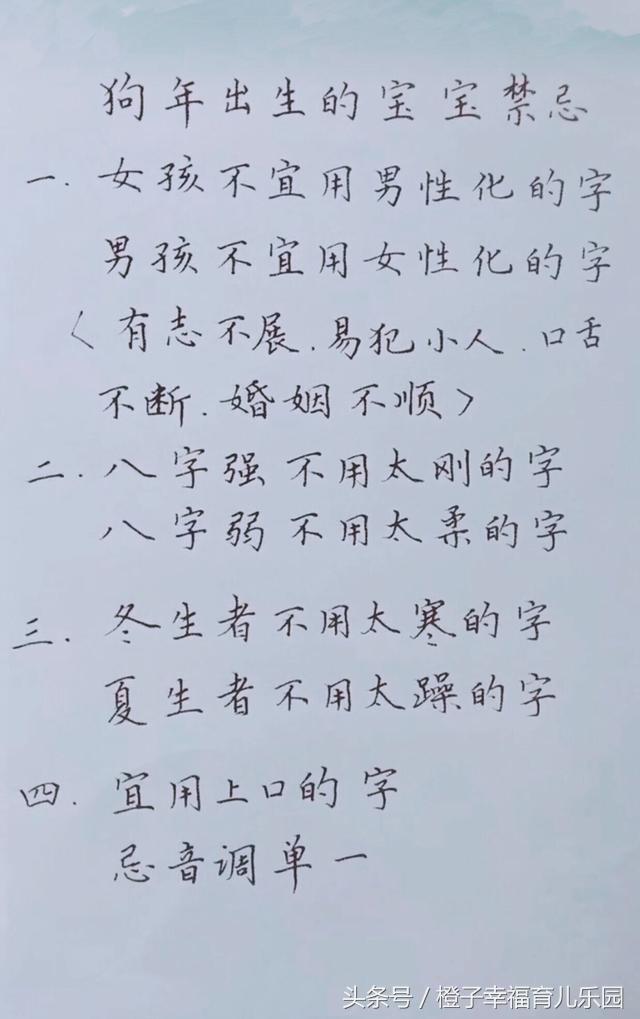 狗年出生的宝宝禁忌
一.女孩不宜用男性化的字
男孩不宜用女性化的字
〈有志不展.易犯小人.口舌
不断.婚姻不顺〉
二.八字强不用太刚的字
八字弱不用太柔的字
三.冬生者不用太寒的字
夏生者不用太躁的字
四.宜用上口的字
忌音调单一
头条号/橙子幸福育儿乐园